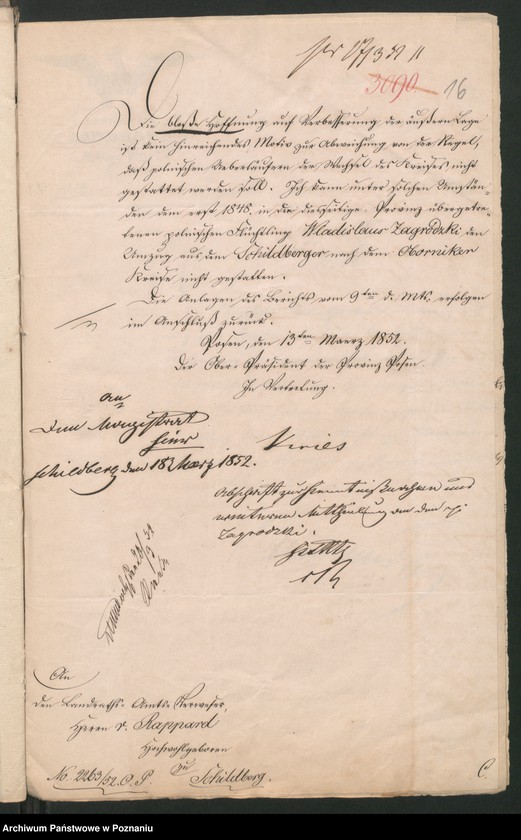 3090 16
Die bloße Hoffnung auf Verbesserung der äußern Lage
ist kein hinreichendes Motiv zur Abweichung von der Regel,
daß polnischen Ueberläufern der Wechsel des Kreises nicht
gestattet werden soll. Ich kann unter solchen Umstän-
den dem erst 1848 in die diesseitige Provinz übergetre-
tenen polnischen Flüchtling Wladislaus Zagrodzki den
Umzug aus dem Schildberger nach dem Oborniker
Kreise nicht gestatten.
Die Anlagen des Berichts vom 9ten d. Mts. erfolgen
im Anschluß zurück.
Posen, den 13ten Maerz 1852.
Der Ober-Präsident der Provinz Posen.
In Vertretung.
An
Den Magistrat
hier
Schildberg den 18 März 1852.
Abschrift zur Kenntnißnahme und
weiteren Mittheilung an den p.
Zagrodzki.
An
den Landraths-Amts-Verweser,
Herrn v. Rappard
Hochwohlgeboren
zu
Schildberg.
No. 2263/52. O. P.
C.
Archiwum Państwowe w Poznaniu